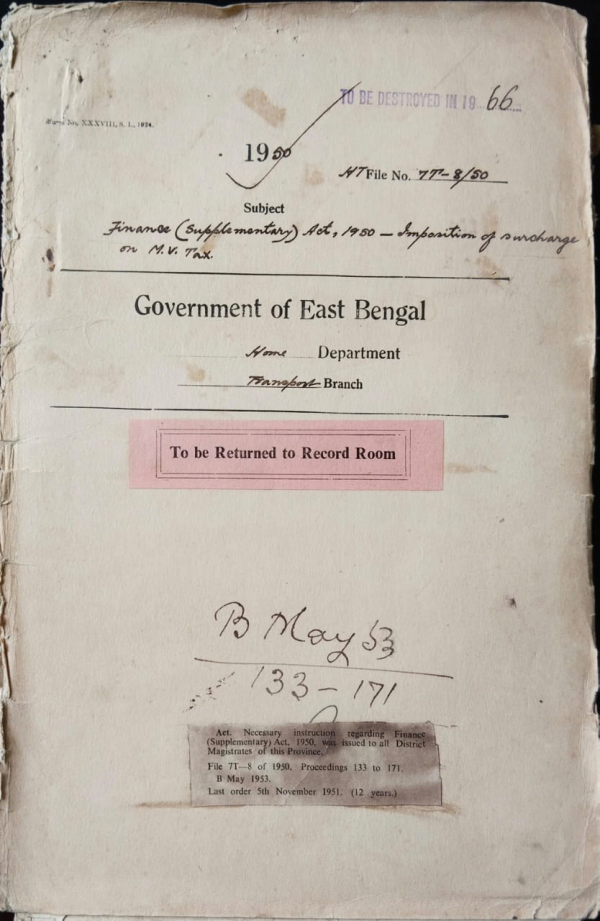 TO BE DESTROYED IN 19 66
Form No. XXXVIII, S. I., 1924.
1950
HT File No. 7T-8/50
Subject
Finance (Supplementary) Act, 1950 — Imposition of surcharge
on M.V. Tax.
Government of East Bengal
Home Department
Transport Branch
To be Returned to Record Room
B May 53
133-171
Act. Necessary instruction regarding Finance
(Supplementary) Act, 1950, was issued to all District
Magistrates of this Province.
File 7T—8 of 1950. Proceedings 133 to 171.
B May 1953.
Last order 5th November 1951. (12 years.)